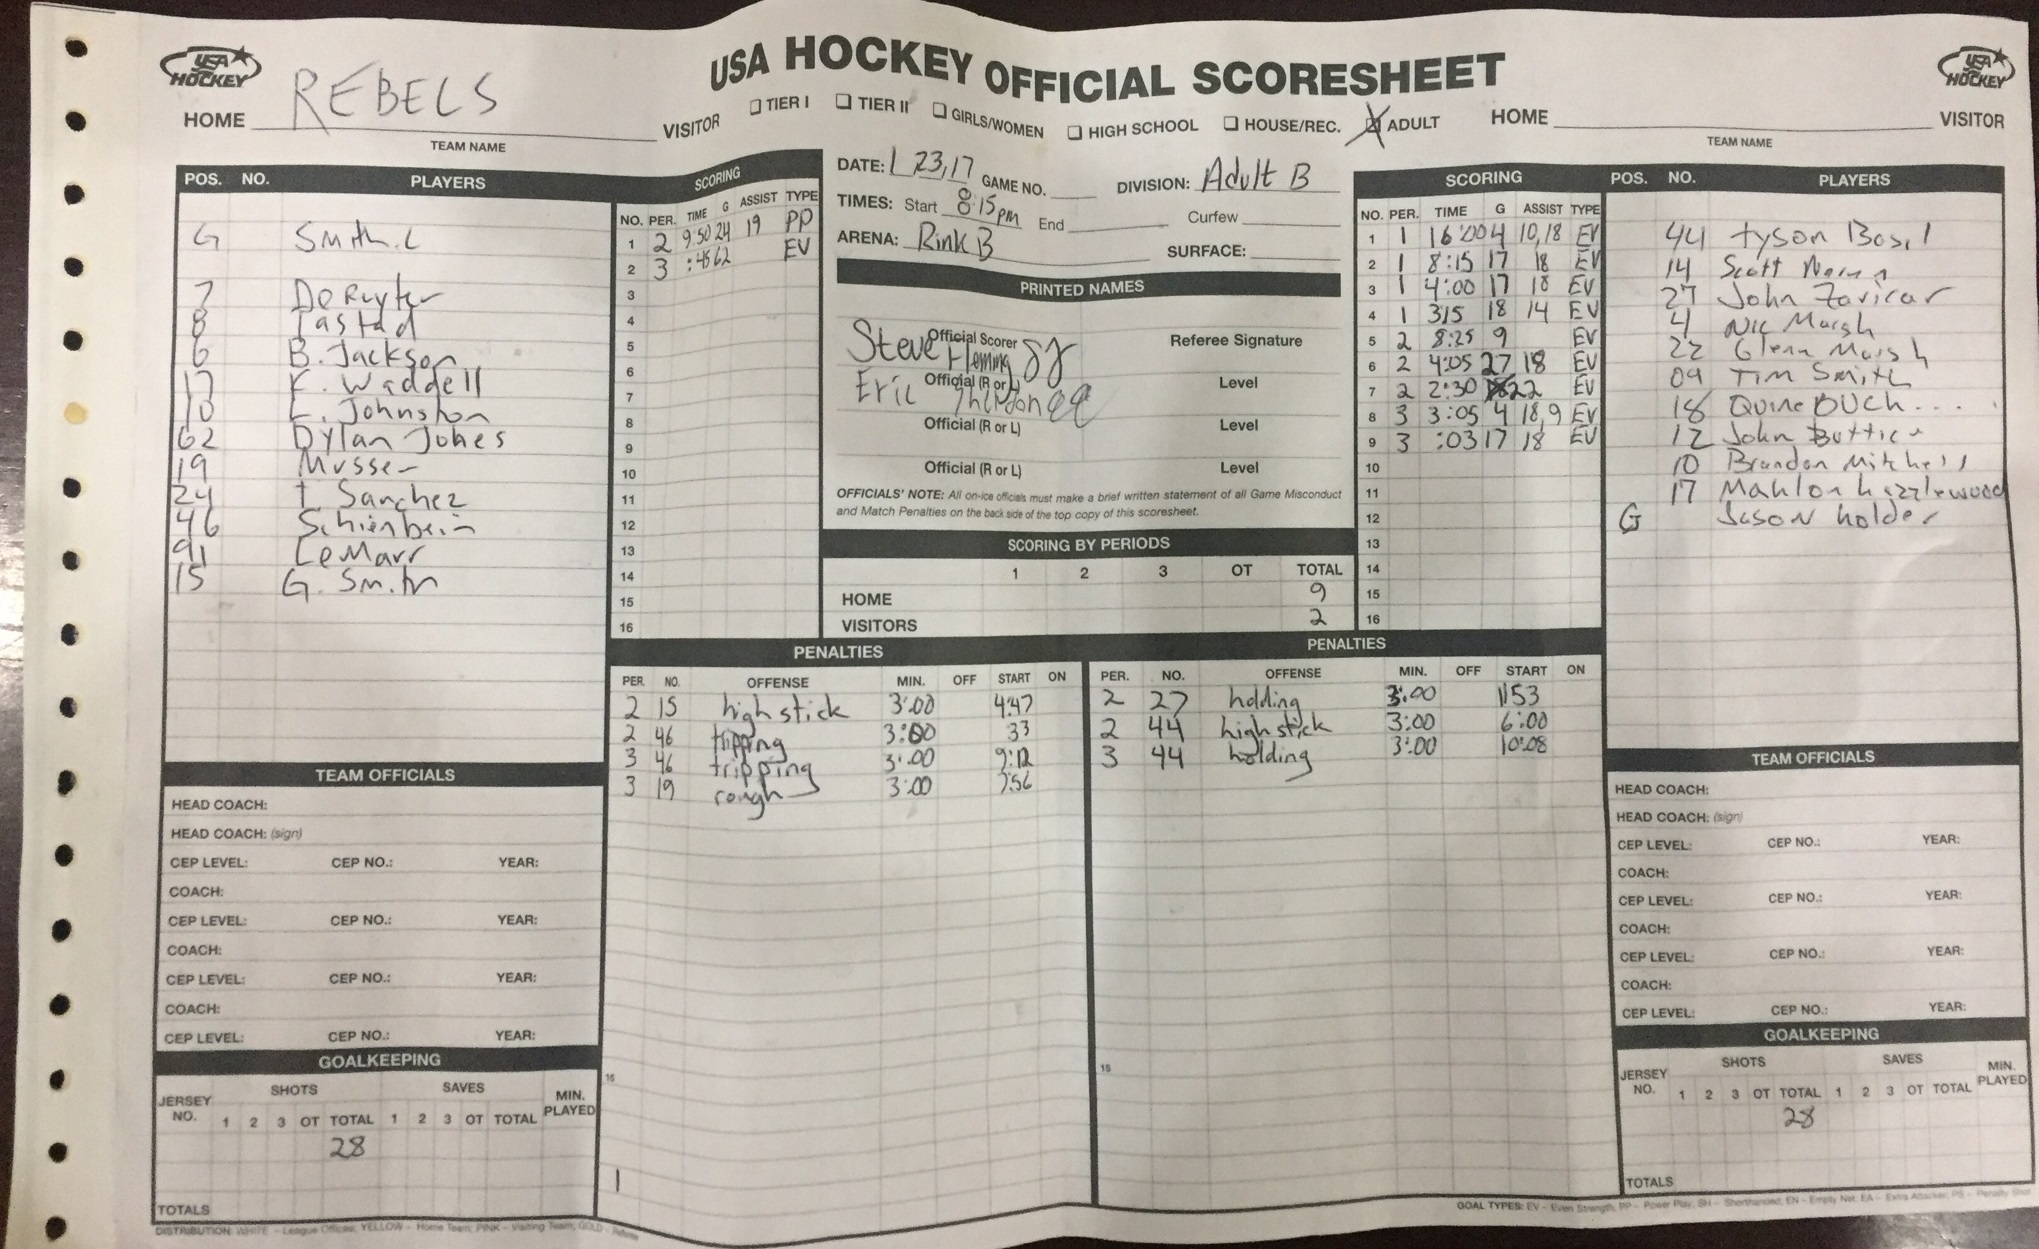 USA HOCKEY OFFICIAL SCORESHEET
USA HOCKEY
USA HOCKEY
HOME REBELS VISITOR
TEAM NAME
TIER I TIER II GIRLS/WOMEN HIGH SCHOOL HOUSE/REC. ADULT
HOME VISITOR
TEAM NAME
DATE: 1 23,17 GAME NO. DIVISION: Adult B
TIMES: Start 8:15pm End Curfew
ARENA: Rink B SURFACE:
POS. NO. PLAYERS
G Smith.C
7 DeRuyter
8 Tastad
6 B. Jackson
17 K. Waddell
10 L. Johnston
62 Dylan Jones
19 Musser
24 T. Sanchez
46 Schienbein
91 LeMarr
15 G. Smith
SCORING
NO. PER. TIME G ASSIST TYPE
1 2 9:50 24 19 PP
2 3 :45 62 EV
3
4
5
6
7
8
9
10
11
12
13
14
15
16
PRINTED NAMES
Steve Fleming
Official Scorer Referee Signature
Eric
Official (R or L) Level
Official (R or L) Level
Official (R or L) Level
OFFICIALS' NOTE: All on-ice officials must make a brief written statement of all Game Misconduct
and Match Penalties on the back side of the top copy of this scoresheet.
SCORING BY PERIODS
1 2 3 OT TOTAL
HOME 9
VISITORS 2
SCORING
NO. PER. TIME G ASSIST TYPE
1 1 16:00 4 10,18 EV
2 1 8:15 17 18 EV
3 1 4:00 17 18 EV
4 1 315 18 14 EV
5 2 8:25 9 EV
6 2 4:05 27 18 EV
7 2 2:30 22 EV
8 3 3:05 4 18,9 EV
9 3 :03 17 18 EV
10
11
12
13
14
15
16
POS. NO. PLAYERS
44 Tyson Basil
14 Scott
27 John Zavicar
4 Nic Marsh
22 Glenn Marsh
09 Tim Smith
18 Quine DUCH....
12 John
10 Brandon Mitchell
17 Mahlon Hazzlewood
G Jason Holder
PENALTIES
PER. NO. OFFENSE MIN. OFF START ON
2 15 high stick 3:00 4:47
2 46 tripping 3:00 33
3 46 tripping 3:00 9:12
3 19 rough 3:00 7:56
16
PENALTIES
PER. NO. OFFENSE MIN. OFF START ON
2 27 holding 3:00 1153
2 44 high stick 3:00 6:00
3 44 holding 3:00 10:08
15
TEAM OFFICIALS
HEAD COACH:
HEAD COACH: (sign)
CEP LEVEL: CEP NO.: YEAR:
COACH:
CEP LEVEL: CEP NO.: YEAR:
COACH:
CEP LEVEL: CEP NO.: YEAR:
COACH:
CEP LEVEL: CEP NO.: YEAR:
GOALKEEPING
JERSEY NO. SHOTS SAVES MIN. PLAYED
1 2 3 OT TOTAL 1 2 3 OT TOTAL
28
TOTALS
TEAM OFFICIALS
HEAD COACH:
HEAD COACH: (sign)
CEP LEVEL: CEP NO.: YEAR:
COACH:
CEP LEVEL: CEP NO.: YEAR:
COACH:
CEP LEVEL: CEP NO.: YEAR:
COACH:
CEP LEVEL: CEP NO.: YEAR:
GOALKEEPING
JERSEY NO. SHOTS SAVES MIN. PLAYED
1 2 3 OT TOTAL 1 2 3 OT TOTAL
28
TOTALS
DISTRIBUTION: WHITE - League Official; YELLOW - Home Team; PINK - Visiting Team; GOLD - Referee
GOAL TYPES: EV - Even Strength; PP - Power Play; SH - Shorthanded; EN - Empty Net; EA - Extra Attacker; PS - Penalty Shot